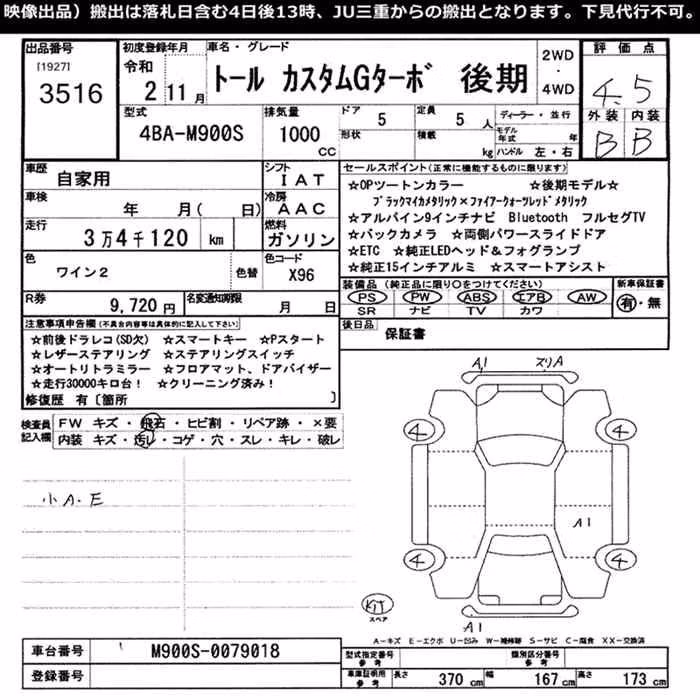 映像出品）搬出は落札日含む4日後13時、JU三重からの搬出となります。下見代行不可。
出品番号 初度登録年月 車名・グレード 2WD・4WD 評価点
[1927] 3516 令和 2 11月 トール カスタムGターボ 後期 4.5
型式 排気量 ドア 定員 ディーラー・並行 外装 内装
4BA-M900S 1000 CC 5 5 人 B B
形状 積載 kg モデル年式 年 ハンドル 左・右
車歴 自家用 シフト IAT
車検 年 月( 日) 冷房 AAC
走行 3万4千120 km 燃料 ガソリン
色 ワイン2 色替 色コード X96
R券 9,720円 名変通知期限 月 日
セールスポイント(正常に機能するものに限ります)
☆OPツートンカラー ☆後期モデル☆
ブラックマイカメタリック×ファイアークォーツレッドメタリック
☆アルパイン9インチナビ Bluetooth フルセグTV
☆バックカメラ ☆両側パワースライドドア
☆ETC ☆純正LEDヘッド&フォグランプ
☆純正15インチアルミ ☆スマートアシスト
装備品(純正品に限り○をつけてください) 新車保証書
PS PW ABS エアB AW 有・無
SR ナビ TV カワ
後日品 保証書
注意事項申告欄(不具合内容等は具体的に記入して下さい)
☆前後ドラレコ(SD欠) ☆スマートキー ☆Pスタート
☆レザーステアリング ☆ステアリングスイッチ
☆オートリトラミラー ☆フロアマット、ドアバイザー
☆走行30000キロ台! ☆クリーニング済み!
修復歴 有〔箇所 〕
検査員記入欄 FW キズ・飛石・ヒビ割・リペア跡・×要
内装 キズ・汚レ・コゲ・穴・スレ・キレ・破レ
小A.E
A1 スリA
4 4
A1
4 4
KIT
スペア
A1
A-キズ E-エクボ U-凹み W-補修跡 S-サビ C-腐食 XX-交換済
車台番号 M900S-0079018
登録番号
型式指定番号 参考 類別区分番号 参考
車庫証明用 参考 長さ 370 cm 幅 167 cm 高さ 173 cm